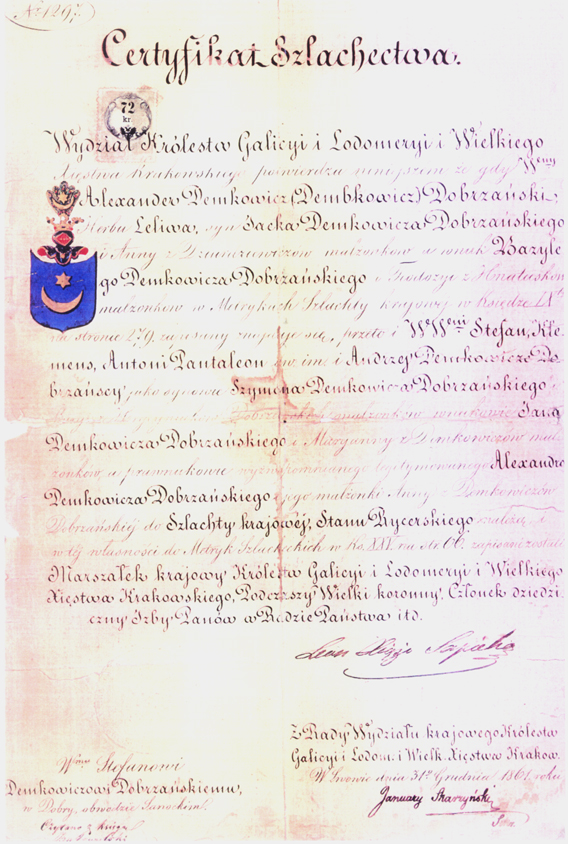 Nr 1297.
Certyfikat Szlachectwa.
72
kr.
Wydział Królestwa Galicyi i Lodomeryi i Wielkiego
Xięstwa Krakowskiego potwierdza niniejszem że gdy Wemy
Alexander Demkowicz (Dembkowicz) Dobrzański,
Herbu Leliwa, syn Jacka Demkowicza Dobrzańskiego
i Anny z małżonków, a wnuk Bazyle
go Demkowicza Dobrzańskiego i Teodozyi z
małżonków w Metrykach Szlachty krajowej w Księdze
na stronie 279. zapisany znajduje się, przeto i WWeni Stefan, Kle
mens, Antoni Pantaleon imion i Andrzej Demkowicze Do
brzańscy jako synowie Szymona Demkowicza Dobrzańskiego i
małżonków wnukowie Jana
Demkowicza Dobrzańskiego i Maryanny z Demkowiczów mał
żonków, a prawnukowie wyżwspomnianego legitymowanego Alexandra
Demkowicza Dobrzańskiego i jego małżonki Anny z Demkowiczów
Dobrzańskiej do Szlachty krajowéj, Stanu Rycerskiego należą, i
w téj własności do Metryk Szlacheckich w Ks. XXV. na str. 66. zapisani zostali
Marszałek krajowy Królestw Galicyi i Lodomeryi i Wielkiego
Xięstwa Krakowskiego, Podczaszy Wielki koronny, Członek dziedzi
czny Izby Panów w Radzie Państwa itd.
Leon Xiąże Sapieha
Z Rady Wydziału krajowego Królestw
Galicyi i Lodom. i Wielk. Xięstwa Krakow.
W Lwowie dnia 31go Grudnia 1861. roku
January Skarzyński
Wmu Stefanowi
Demkowiczowi Dobrzańskiemu,
w Dobry, obwodzie Sanockim.
Czytano z księgą